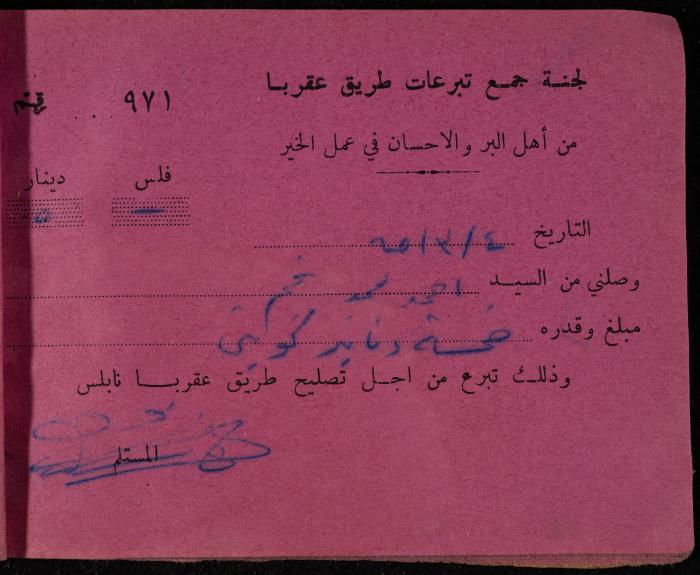 لجنة جمع تبرعات طريق عقربا
٩٧١
من أهل البر والاحسان في عمل الخير
فلس دينار
— ٥
التاريخ ٤/٣/٦٥
وصلني من السيد احمد محمد نجم
مبلغ وقدره خمسة دنانير كويتي
وذلك تبرع من اجل تصليح طريق عقربا نابلس
المستلم